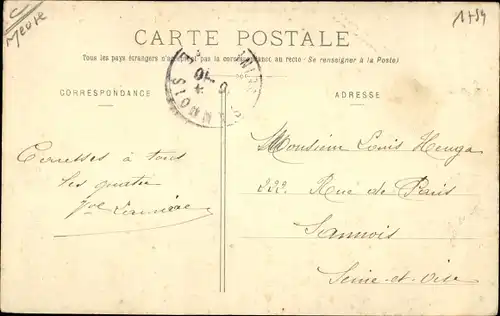 Meuse
1454
CARTE POSTALE
Tous les pays étrangers n'acceptent pas la correspondance au recto (Se renseigner à la Poste)
CORRESPONDANCE
ADRESSE
SANNOIS
Caresses à tous
les quatre
Monsieur Louis Heuga
222. Rue de Paris
Sannois
Seine-et-Oise